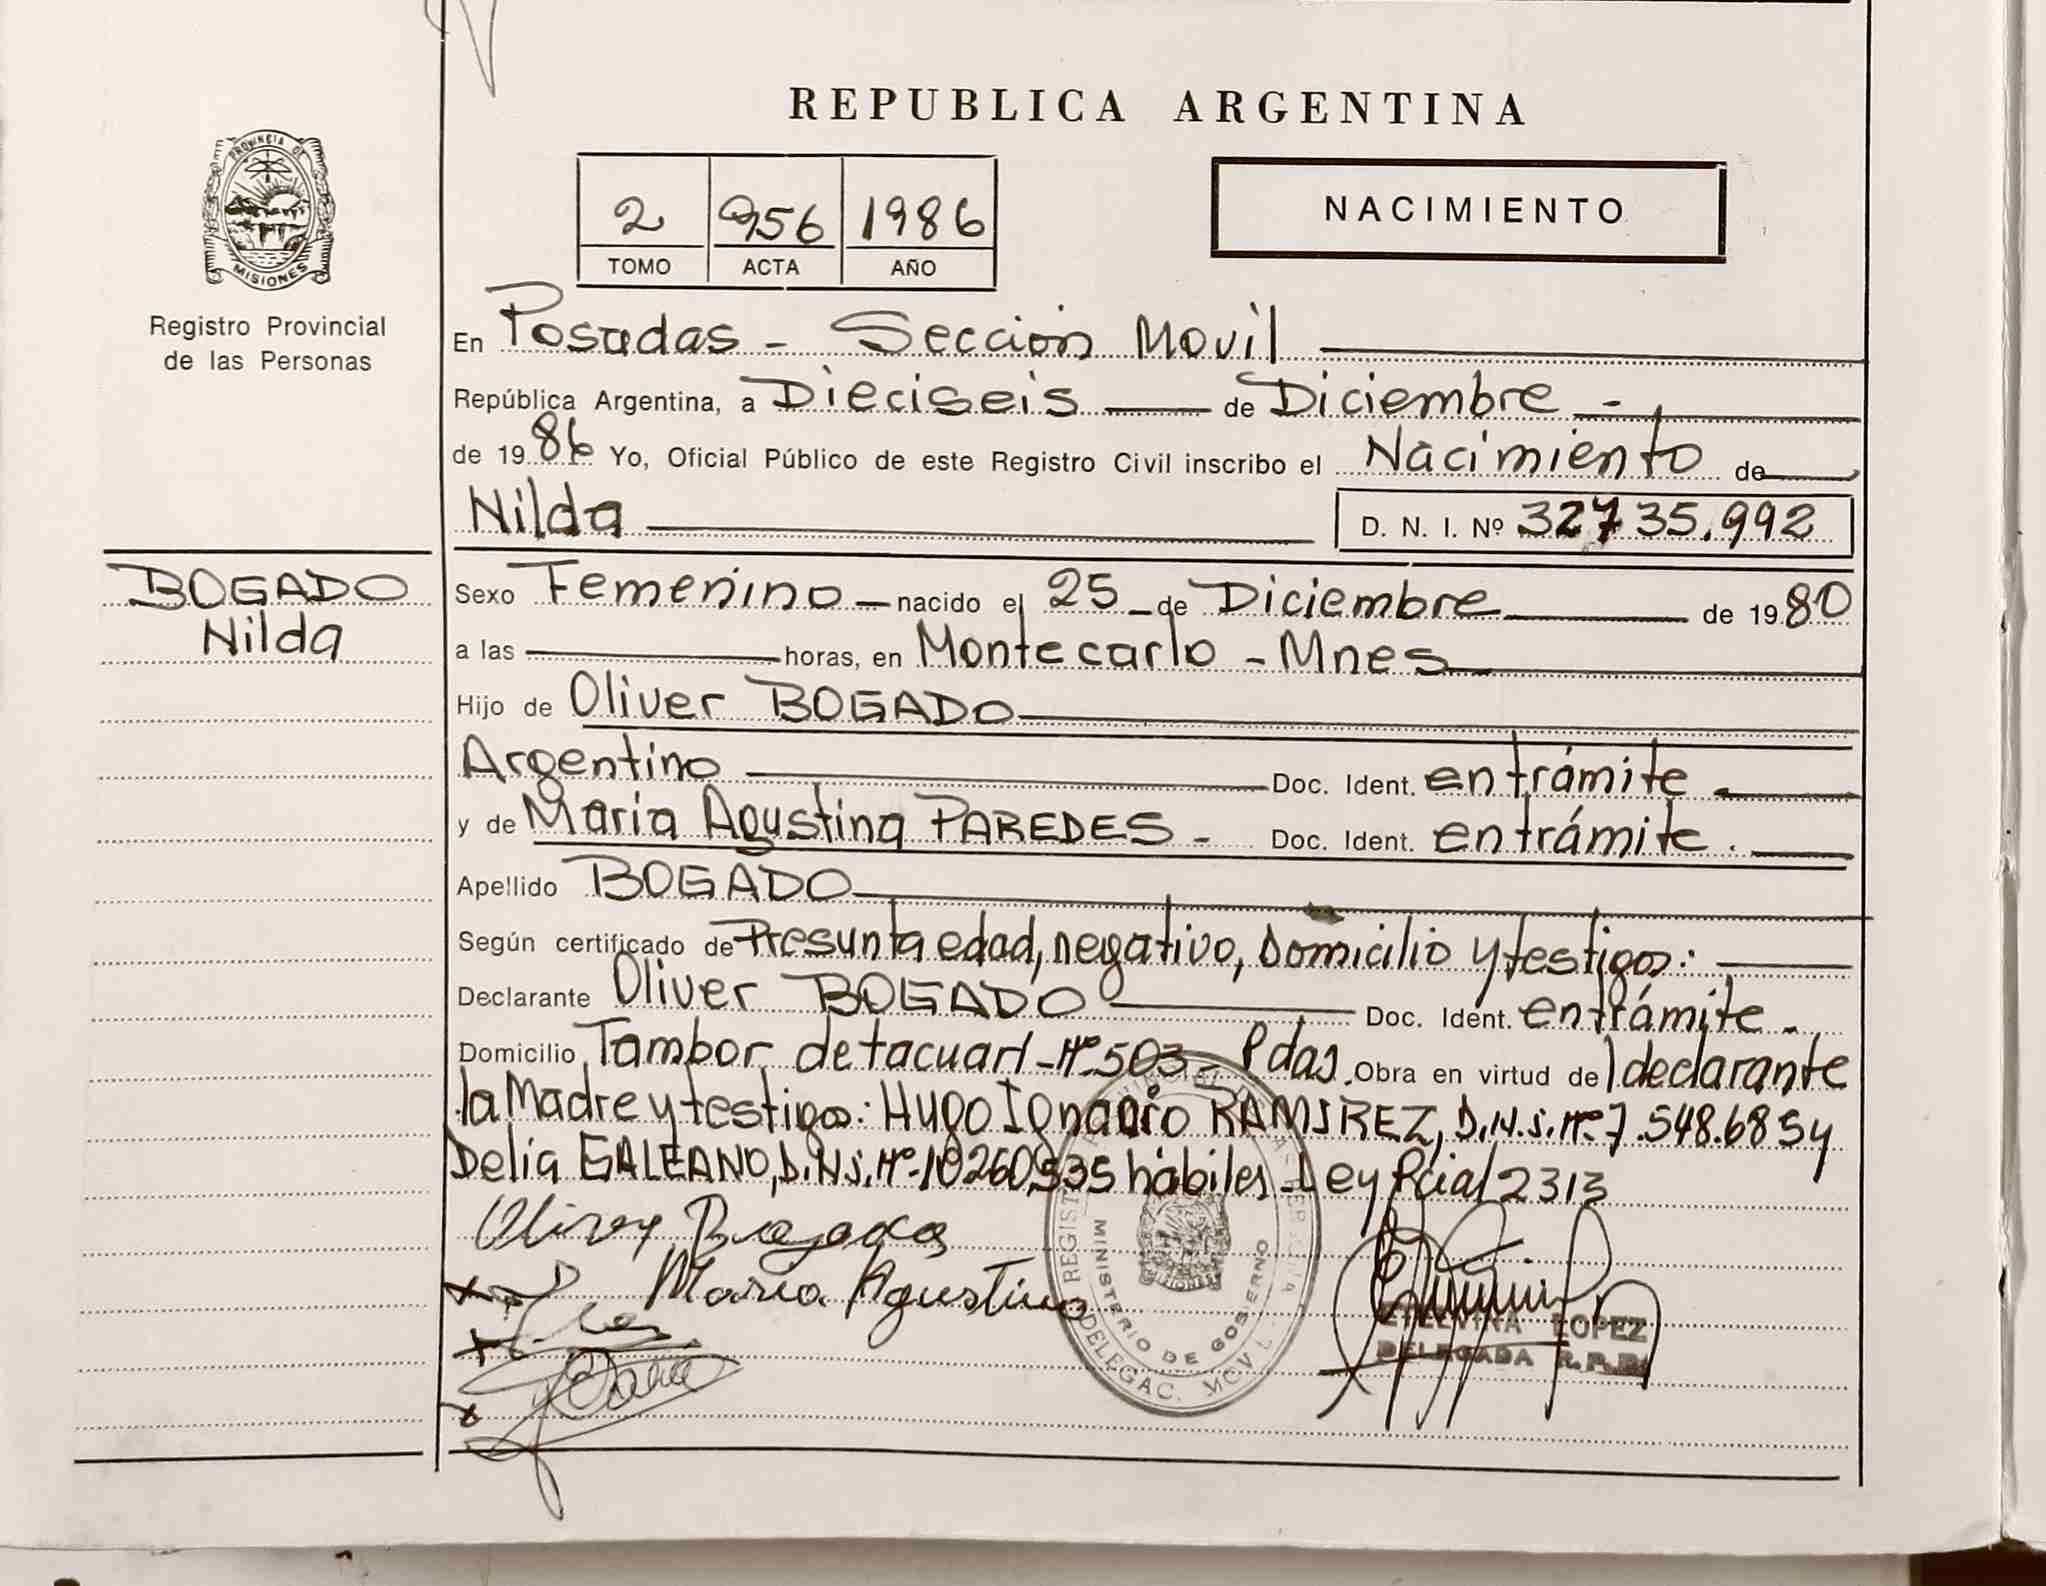 REPUBLICA ARGENTINA
PROVINCIA DE
MISIONES
Registro Provincial
de las Personas
2 956 1986
TOMO ACTA AÑO
NACIMIENTO
En Posadas - Sección Movil
República Argentina, a Dieciseis de Diciembre -
de 1986 Yo, Oficial Público de este Registro Civil inscribo el Nacimiento de
Nilda D. N. I. Nº 32735.992
BOGADO
Nilda
Sexo Femenino nacido el 25 de Diciembre de 1980
a las horas, en Montecarlo - Mnes
Hijo de Oliver BOGADO
Argentino Doc. Ident. en trámite -
y de Maria Agustina PAREDES - Doc. Ident. en trámite.
Apellido BOGADO
Según certificado de Presunta edad, negativo, domicilio y testigos:
Declarante Oliver BOGADO Doc. Ident. en trámite -
Domicilio Tambor de tacuarí - Nº 503 - Pdas. Obra en virtud de declarante
la Madre y testigos: Hugo Ignacio RAMIREZ, D.N.I. Nº 7.548.685 y
Delia GALEANO, D.N.I. Nº 10260535 hábiles - Ley Pcial 2313
Oliver Bogado
Maria Agustina
MINISTERIO DE GOBIERNO
DELEGAC. MOVIL
LOPEZ
DELEGADA R.P.P.